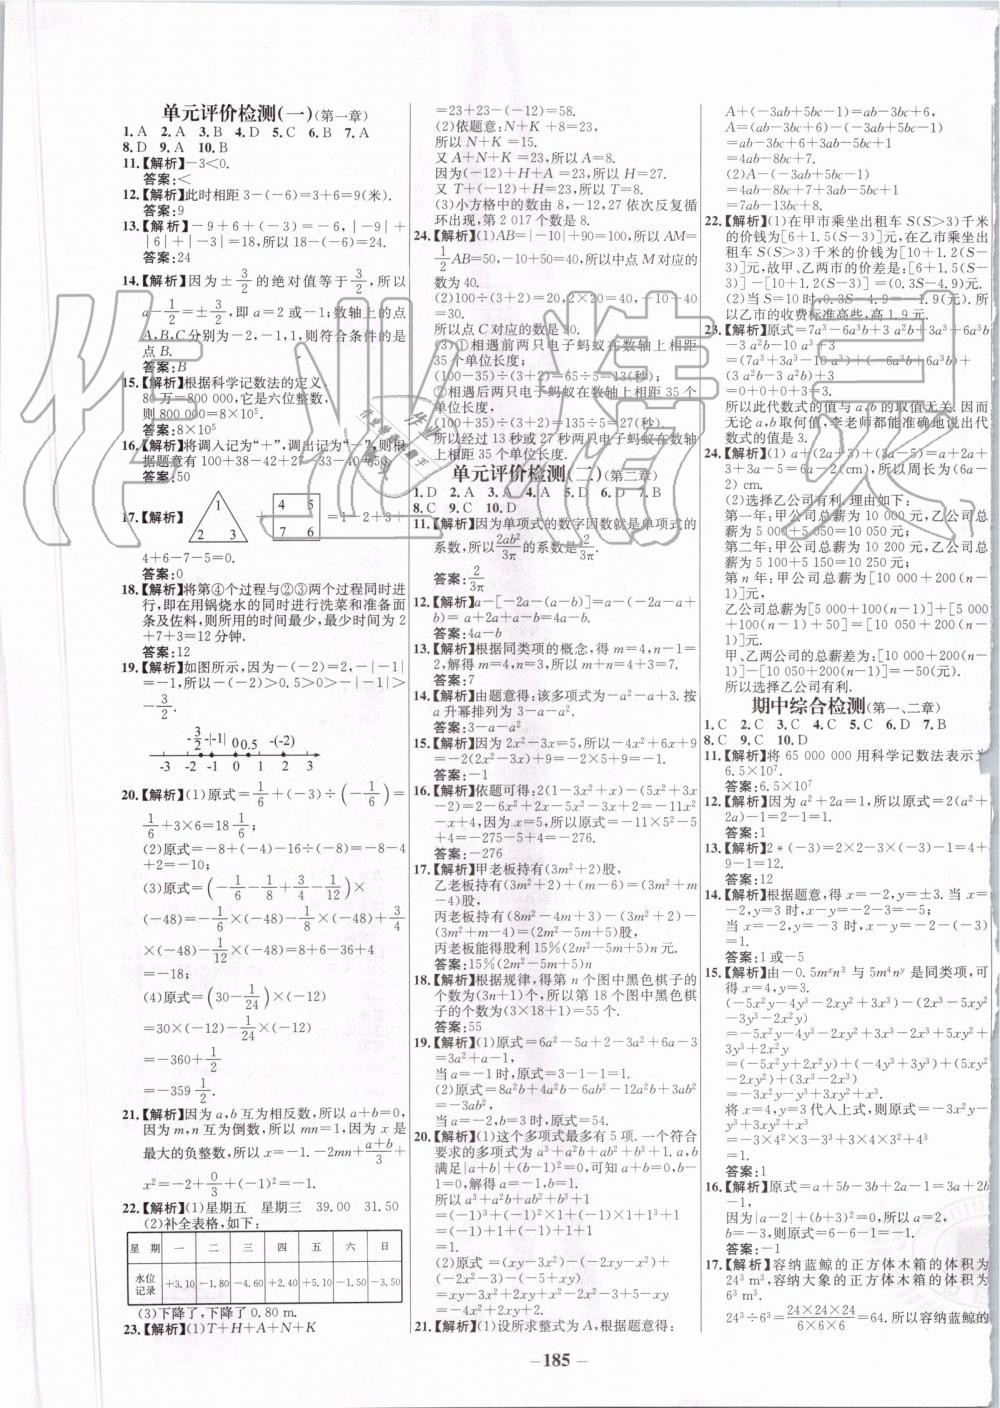 单元评价检测(一)(第一章)
1. A 2. A 3. B 4. D 5. C 6. B 7. A
8. D 9. A 10. B
11.【解析】－3＜0.
答案:＜
12.【解析】此时相距 3－(－6)＝3＋6＝9(米).
答案:9
13.【解析】－9＋6＋(－3)＝－6,|－9|＋
|6|＋|－3|＝18,所以 18－(－6)＝24.
答案:24
14.【解析】因为±3/2的绝对值等于3/2,所以
a－1/2＝±3/2,即 a＝2 或－1;数轴上的点
A,B,C 分别为－2,－1,1,则符合条件的是
点 B.
答案:B
15.【解析】根据科学记数法的定义,
80 万＝800 000,它是六位整数,
则 800 000＝8×10⁵.
答案:8×10⁵
16.【解析】将调入记为“＋”,调出记为“－”,则根
据题意有 100＋38－42＋27－33－40＝50.
答案:50
17.【解析】 1 2 3 ＋ 4 5 7 6 ＝1－2＋3＋
4＋6－7－5＝0.
答案:0
18.【解析】将第④个过程与②③两个过程同时进
行,即在用锅烧水的同时进行洗菜和准备面
条及佐料,则所用的时间最少,最少时间为 2
＋7＋3＝12 分钟.
答案:12
19.【解析】如图所示,因为－(－2)＝2,－|－1|
＝－1,所以－(－2)＞0.5＞0＞－|－1|＞
－3/2.
-3/2 -|-1| 0 0.5 -(-2)
-3 -2 -1 0 1 2 3
20.【解析】(1)原式＝1/6＋(－3)÷(－1/6)＝
1/6＋3×6＝18 1/6;
(2)原式＝－8＋(－4)－16÷(－8)＝－8－4
＋2＝－10;
(3)原式＝(－1/6－1/8＋3/4－1/12)×
(－48)＝－1/6×(－48)－1/8×(－48)＋3/4
×(－48)－1/12×(－48)＝8＋6－36＋4
＝－18;
(4)原式＝(30－1/24)×(－12)
＝30×(－12)－1/24×(－12)
＝－360＋1/2
＝－359 1/2.
21.【解析】因为 a,b 互为相反数,所以 a＋b＝0,
因为 m,n 互为倒数,所以 mn＝1,因为 x 是
最大的负整数,所以 x＝－1. －2mn＋(a＋b)/3＋
x²＝－2＋0/3＋(－1)²＝－1.
22.【解析】(1)星期五 星期三 39.00 31.50
(2)补全表格,如下:
星 期 一 二 三 四 五 六 日
水位记录 ＋3.10 －1.80 －4.60 ＋2.40 ＋5.10 －1.50 －3.50
(3)下降了,下降了 0.80 m.
23.【解析】(1)T＋H＋A＋N＋K
＝23＋23－(－12)＝58.
(2)依题意:N＋K ＋8＝23,
所以 N＋K ＝15.
又 A＋N＋K＝23,所以 A＝8.
因为(－12)＋H＋A ＝23,所以 H＝27.
又 T＋(－12)＋H＝23,所以 T＝8.
(3)小方格中的数由 8,－12,27 依次反复循
环出现,第 2 017 个数是 8.
24.【解析】(1)AB＝|－10|＋90＝100,所以 AM＝
1/2AB＝50,－10＋50＝40,所以中点 M 对应的
数为 40.
(2)100÷(3＋2)＝20,2×20＝40,－10＋40
＝30.
所以点 C 对应的数是 30.
(3)①相遇前两只电子蚂蚁在数轴上相距
35 个单位长度;
(100－35)÷(3＋2)＝65÷5＝13(秒);
②相遇后两只电子蚂蚁在数轴上相距 35 个
单位长度:
(100＋35)÷(3＋2)＝135÷5＝27(秒).
所以经过 13 秒或 27 秒两只电子蚂蚁在数轴
上相距 35 个单位长度.
单元评价检测(二)(第二章)
1. D 2. A 3. A 4. A 5. D 6. D 7. B
8. C 9. C 10. D
11.【解析】因为单项式的数字因数就是单项式的
系数,所以2ab²/3π的系数是2/3π.
答案:2/3π
12.【解析】a－[－2a－(a－b)]＝a－(－2a－a＋
b)＝ a＋2a＋a－b＝4a－b.
答案:4a－b
13.【解析】根据同类项的概念,得 m＝4,n－1＝
2,解得 m＝4,n＝3,所以 m＋n＝4＋3＝7.
答案:7
14.【解析】由题意得:该多项式为－a²－a＋3.按
a 升幂排列为 3－a－a².
答案:3－a－a²
15.【解析】因为 2x²－3x＝5,所以－4x²＋6x＋9
＝－2(2x²－3x)＋9＝－1.
答案:－1
16.【解析】依题可得:2(1－3x²＋x)－(5x²＋3x
－2)＝2－6x²＋2x－5x²－3x＋2＝－11x²
－x＋4,因为 x＝5,所以原式＝－11×5²－
5＋4＝－275－5＋4＝－276.
答案:－276
17.【解析】甲老板持有(3m²＋2)股,
乙老板持有(3m²＋2)＋(m－6)＝(3m²＋m
－4)股,
丙老板持有(8m²－4m＋3)－(3m²＋2)－
(3m²＋m－4)＝(2m²－5m＋5)股
丙老板能得股利 15%(2m²－5m＋5)n 元.
答案:15%(2m²－5m＋5)n
18.【解析】根据规律,得第 n 个图中黑色棋子的
个数为(3n＋1)个,所以第 18 个图中黑色棋
子的个数为(3×18＋1)＝55 个.
答案:55
19.【解析】(1)原式＝6a²－5a＋2－3a²＋6a－3
＝3a²＋a－1,
当 a＝－1 时,原式＝3－1－1＝1.
(2)原式＝8a²b＋4a²b－6ab²－12a²b＋3ab²
＝－3ab²,
当 a＝－2,b＝3 时,原式＝54.
20.【解析】(1)这个多项式最多有 5 项. 一个符合
要求的多项式为 a³＋a²b＋ab²＋b³＋1,a,b
满足|a＋b|＋(b－1)²＝0,可知 a＋b＝0,b－
1＝0,解得 a＝－1,b＝1.
所以 a³＋a²b＋ab²＋b³＋1
＝(－1)³＋(－1)²×1＋(－1)×1＋1³＋1
＝(－1)＋1＋(－1)＋1＋1
＝1.
(2)原式＝(xy－3x²)－2(xy－3x²)－
＝xy－3x²＋2x²＋2xy－2x²－3x²－xy
＝－4x²＋2xy＋2.
21.【解析】(1)设所求整式为 A,根据题意得:
A＋(－3ab＋5bc－1)＝ab－3bc＋6,
A＝ab－3bc＋6－(－3ab＋5bc－1)
＝ab－3bc＋6＋3ab－5bc＋1
＝4ab－8bc＋7.
(2)A－(－3ab＋5bc－1)
＝4ab－8bc＋7＋3ab－5bc＋1
＝7ab－13bc＋8.
22.【解析】(1)在甲市乘坐出租车 S(S＞3)千米
的价钱为[6＋1.5(S－3)]元,在乙市乘坐出
租车 S(S＞3)千米的价钱为[10＋1.2(S－
3)]元. 故甲、乙两市的价差是:[6＋1.5(S－
3)]－[10＋1.2(S－3)]＝(0.3S－4.9)元.
(2)当 S＝10 时,0.3S－4.9＝－1.9(元),所
以乙市的收费标准高些,高 1.9 元.
23.【解析】原式＝7a³－6a³b＋3 a²b＋3a³＋6a³b
－3 a²b－10a³＋3
＝(7a³＋3a³－10a³)＋(－6a³b＋6a³b)＋
(3 a²b－3 a²b)＋3
＝0＋0＋0＋3
＝3.
所以此代数式的值与 a,b 的取值无关. 因而
无论 a,b 取何值,李老师都能准确地说出代
数式的值是 3.
24.【解析】(1) a＋(2a－5)＋(3a－5)＝a＋2a＋
2＋3a－3－5＝6a－2(cm),所以周长为(6a－
2) cm.
(2)选择乙公司有利. 理由如下:
第一年:甲公司总薪为 10 000 元,乙公司总薪为
5 000＋5 050＝10 050(元);
第二年:甲公司总薪为 10 200 元,乙公司总薪为
5 100＋5 150＝10 250(元);
第 n 年:甲公司总薪为[10 000＋200(n－
1)]元,
乙公司总薪为[5 000＋100(n－1)]＋[5 000
＋100(n－1)＋50]＝[10 050＋200(n－1)]
元.
甲、乙两公司的总薪差为:[10 000＋200(n－
1)]－[10 050＋200(n－1)]＝－50(元).
所以选择乙公司有利.
期中综合检测(第一、二章)
1. C 2. C 3. C 4. C 5. C 6. D 7. B
8. C 9. C 10. D
11.【解析】将 65 000 000 用科学记数法表示为
6.5×10⁷.
答案:6.5×10⁷
12.【解析】因为 a²＋2a＝1,所以原式＝2(a²＋
2a)－1＝2－1＝1.
答案:1
13.【解析】2*(－3)＝2×2－3×(－3)－1＝4＋
9－1＝12.
答案:12
14.【解析】根据题意,得 x＝－2,y＝±3. 当 x＝
－2,y＝3 时,x－y＝－2－3＝－5;
当 x＝－2,y＝－3 时,x－y＝－2－(－3)
＝1.
答案:1 或－5
15.【解析】由－0.5mˣn³ 与 5m⁴nʸ 是同类项,可
得 x＝4,y＝3.
(－5x²y－4y³－2xy²＋3x³)－(2x³－5xy²
－3y³－2x²y)
＝－5x²y－4y³－2xy²＋3x³－2x³＋5xy²＋
3y³＋2x²y
＝(－5x²y＋2x²y)＋(－4y³＋3y³)＋(5xy²
－2xy²)＋(3x³－2x³)
＝－3x²y－y³＋3xy²＋x³
将 x＝4,y＝3 代入上式,则原式＝－3x²y－
y³＋3xy²＋x³
＝－3×4²×3－3³＋3×4×3²＋4³
＝1.
答案:1
16.【解析】原式＝a＋5b－3b＋2a－1＝3a＋2b
－1,
因为|a－2|＋(b＋3)²＝0,所以 a＝2,
答案:－1
17.【解析】容纳蓝鲸的正方体木箱的体积为
24³ m³,容纳大象的正方体木箱的体积为
6³ m³.
24³÷6³＝(24×24×24)/(6×6×6)＝64. 所以容纳蓝鲸的
－185－
作业精灵